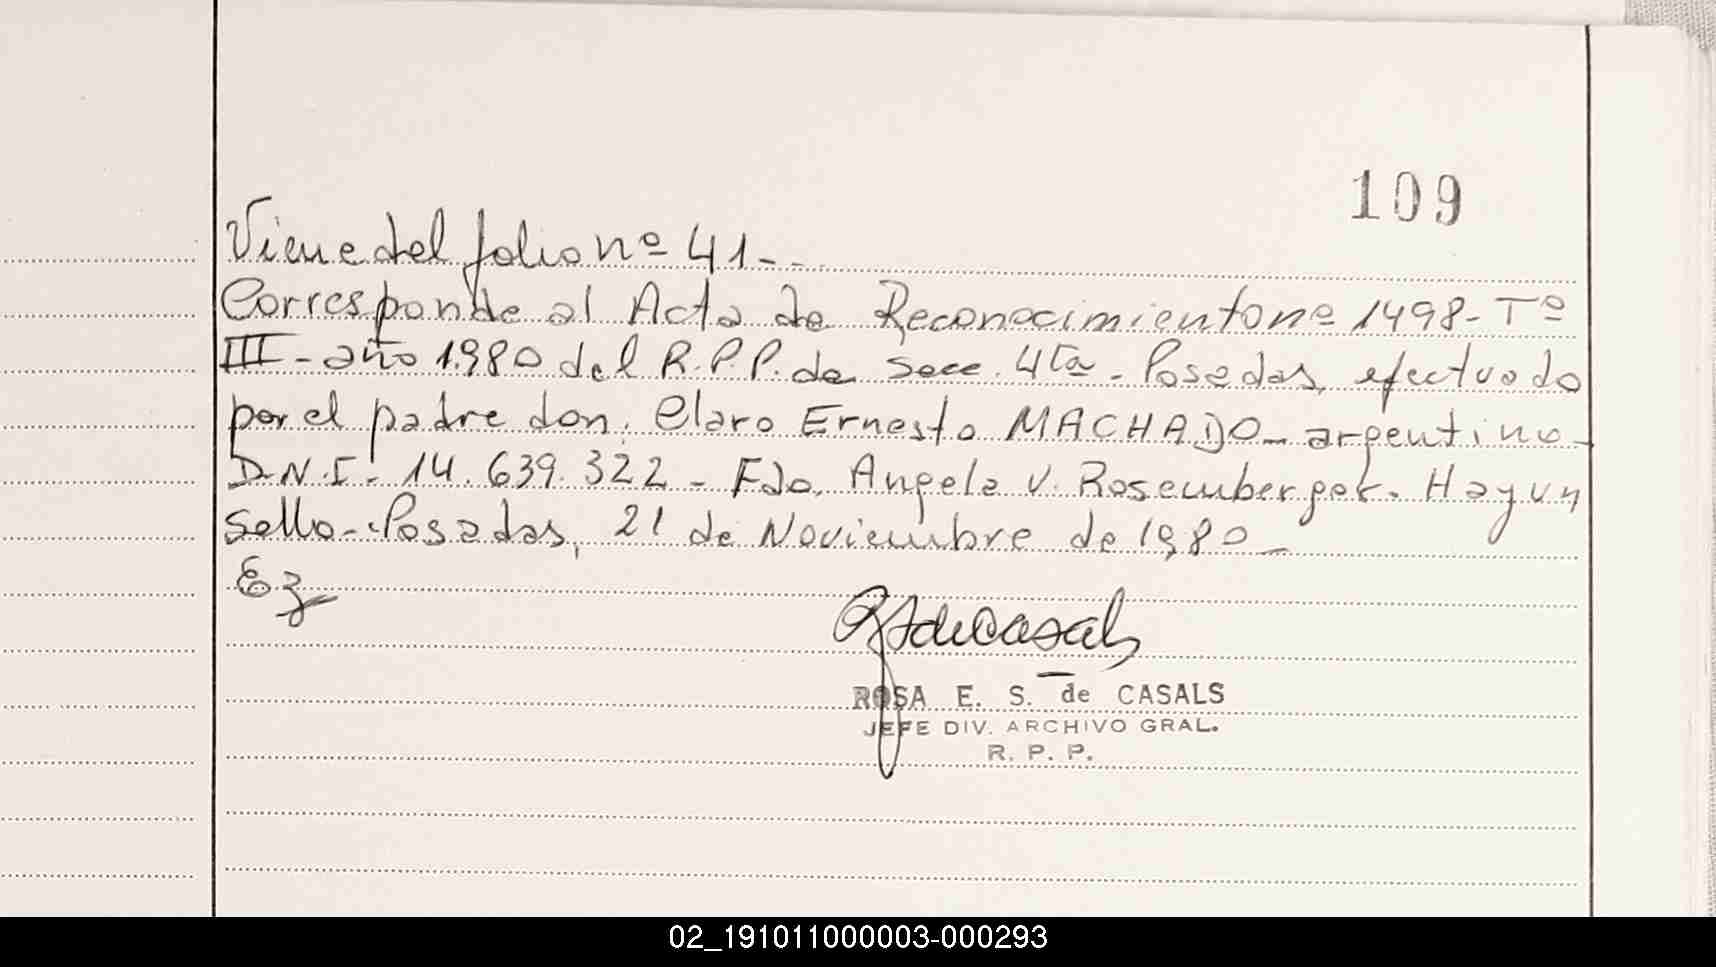 109
Viene del folio nº 41-..
Corresponde al Acta de Reconocimiento nº 1498- Tº
III - año 1980 del R.P.P. de Secc. 4ta - Posadas, efectuado
por el padre don: Claro Ernesto MACHADO - argentino -
D.N.I. 14.639.322 - Fdo. Angela V. Rosemberger. Hay un
sello - Posadas, 21 de Noviembre de 1980 -
RSdeCasals
ROSA E. S. de CASALS
JEFE DIV. ARCHIVO GRAL.
R. P. P.
02_191011000003-000293